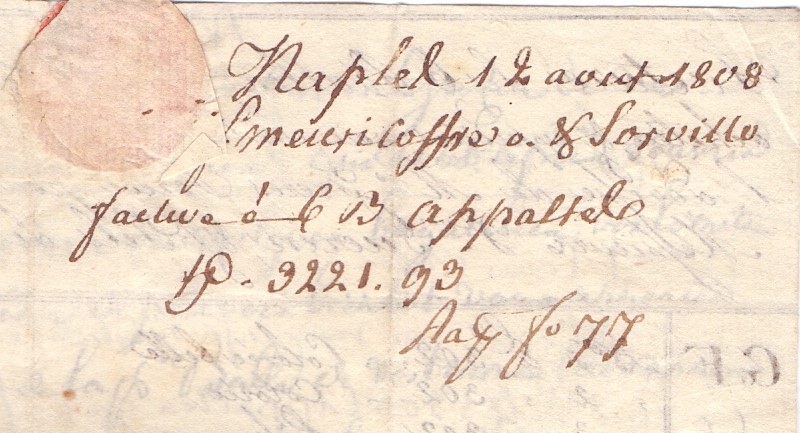 Naples 12 aout 1808
Meuricoffre o. & Sorvillo
facture à C B Appaltel
9221. 93
fo 77
G. F.